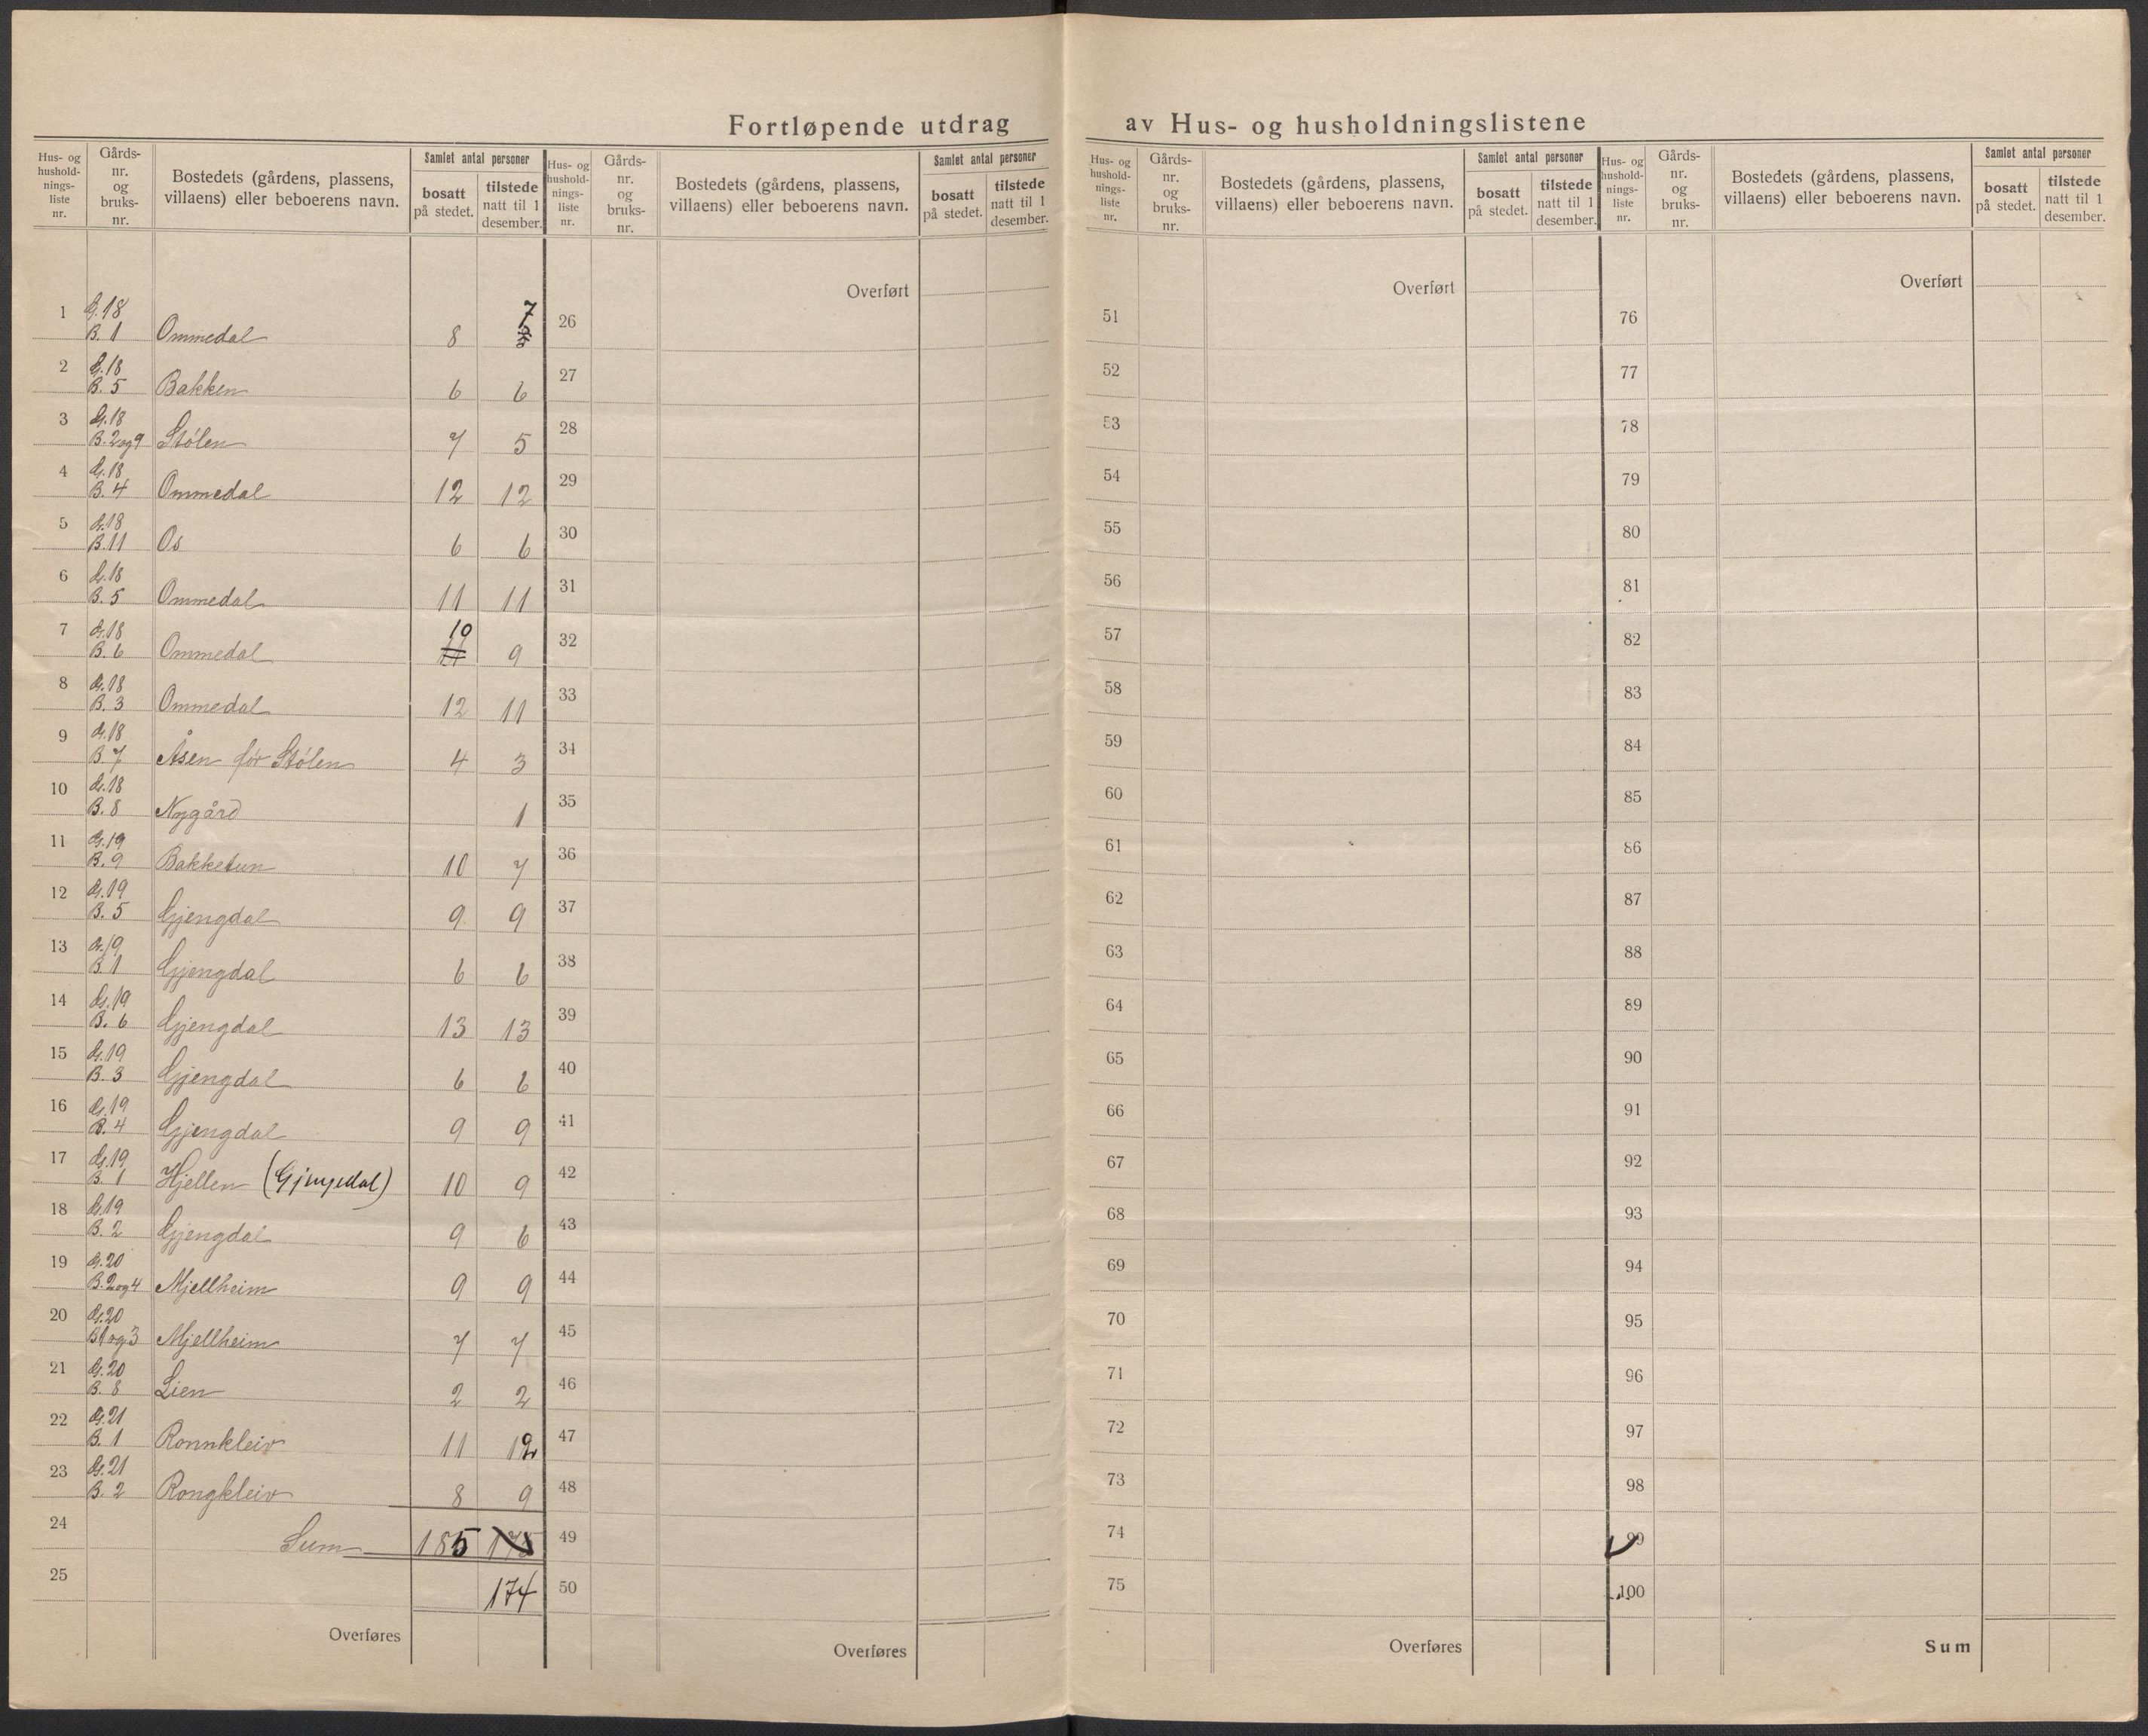 Fortløpende utdrag av Hus- og husholdningslistene
Hus- og hushold-nings-liste nr. Gårds-nr. og bruks-nr. Bostedets (gårdens, plassens, villaens) eller beboerens navn. Samlet antal personer bosatt på stedet. tilstede natt til 1 desember.
1 G. 18 B. 1 Ommedal 8 7
2 G. 18 B. 5 Bakken 6 6
3 G. 18 B. 2 og 9 Stølen 7 5
4 G. 18 B. 4 Ommedal 12 12
5 G. 18 B. 11 Os 6 6
6 G. 18 B. 5 Ommedal 11 11
7 G. 18 B. 6 Ommedal 10 11 9
8 G. 18 B. 3 Ommedal 12 11
9 G. 18 B. 7 Åsen før Stølen 4 3
10 G. 18 B. 8 Nygård 1
11 G. 19 B. 9 Bakketun 10 7
12 G. 19 B. 5 Gjengdal 9 9
13 G. 19 B. 1 Gjengdal 6 6
14 G. 19 B. 6 Gjengdal 13 13
15 G. 19 B. 3 Gjengdal 6 6
16 G. 19 B. 4 Gjengdal 9 9
17 G. 19 B. 1 Hjellen (Gjengedal) 10 9
18 G. 19 B. 2 Gjengdal 9 6
19 G. 20 B. 2 og 4 Mjellheim 9 9
20 G. 20 B. 1 og 3 Mjellheim 7 7
21 G. 20 B. 8 Lien 2 2
22 G. 21 B. 1 Ronnkleiv 11 12
23 G. 21 B. 2 Rongkleiv 8 9
24 Sum 185 175
25 174
Overføres
Hus- og hushold-nings-liste nr. Gårds-nr. og bruks-nr. Bostedets (gårdens, plassens, villaens) eller beboerens navn. Samlet antal personer bosatt på stedet. tilstede natt til 1 desember.
Overført
26
27
28
29
30
31
32
33
34
35
36
37
38
39
40
41
42
43
44
45
46
47
48
49
50
Overføres
Hus- og hushold-nings-liste nr. Gårds-nr. og bruks-nr. Bostedets (gårdens, plassens, villaens) eller beboerens navn. Samlet antal personer bosatt på stedet. tilstede natt til 1 desember.
Overført
51
52
53
54
55
56
57
58
59
60
61
62
63
64
65
66
67
68
69
70
71
72
73
74
75
Overføres
Hus- og hushold-nings-liste nr. Gårds-nr. og bruks-nr. Bostedets (gårdens, plassens, villaens) eller beboerens navn. Samlet antal personer bosatt på stedet. tilstede natt til 1 desember.
Overført
76
77
78
79
80
81
82
83
84
85
86
87
88
89
90
91
92
93
94
95
96
97
98
99
100
Sum